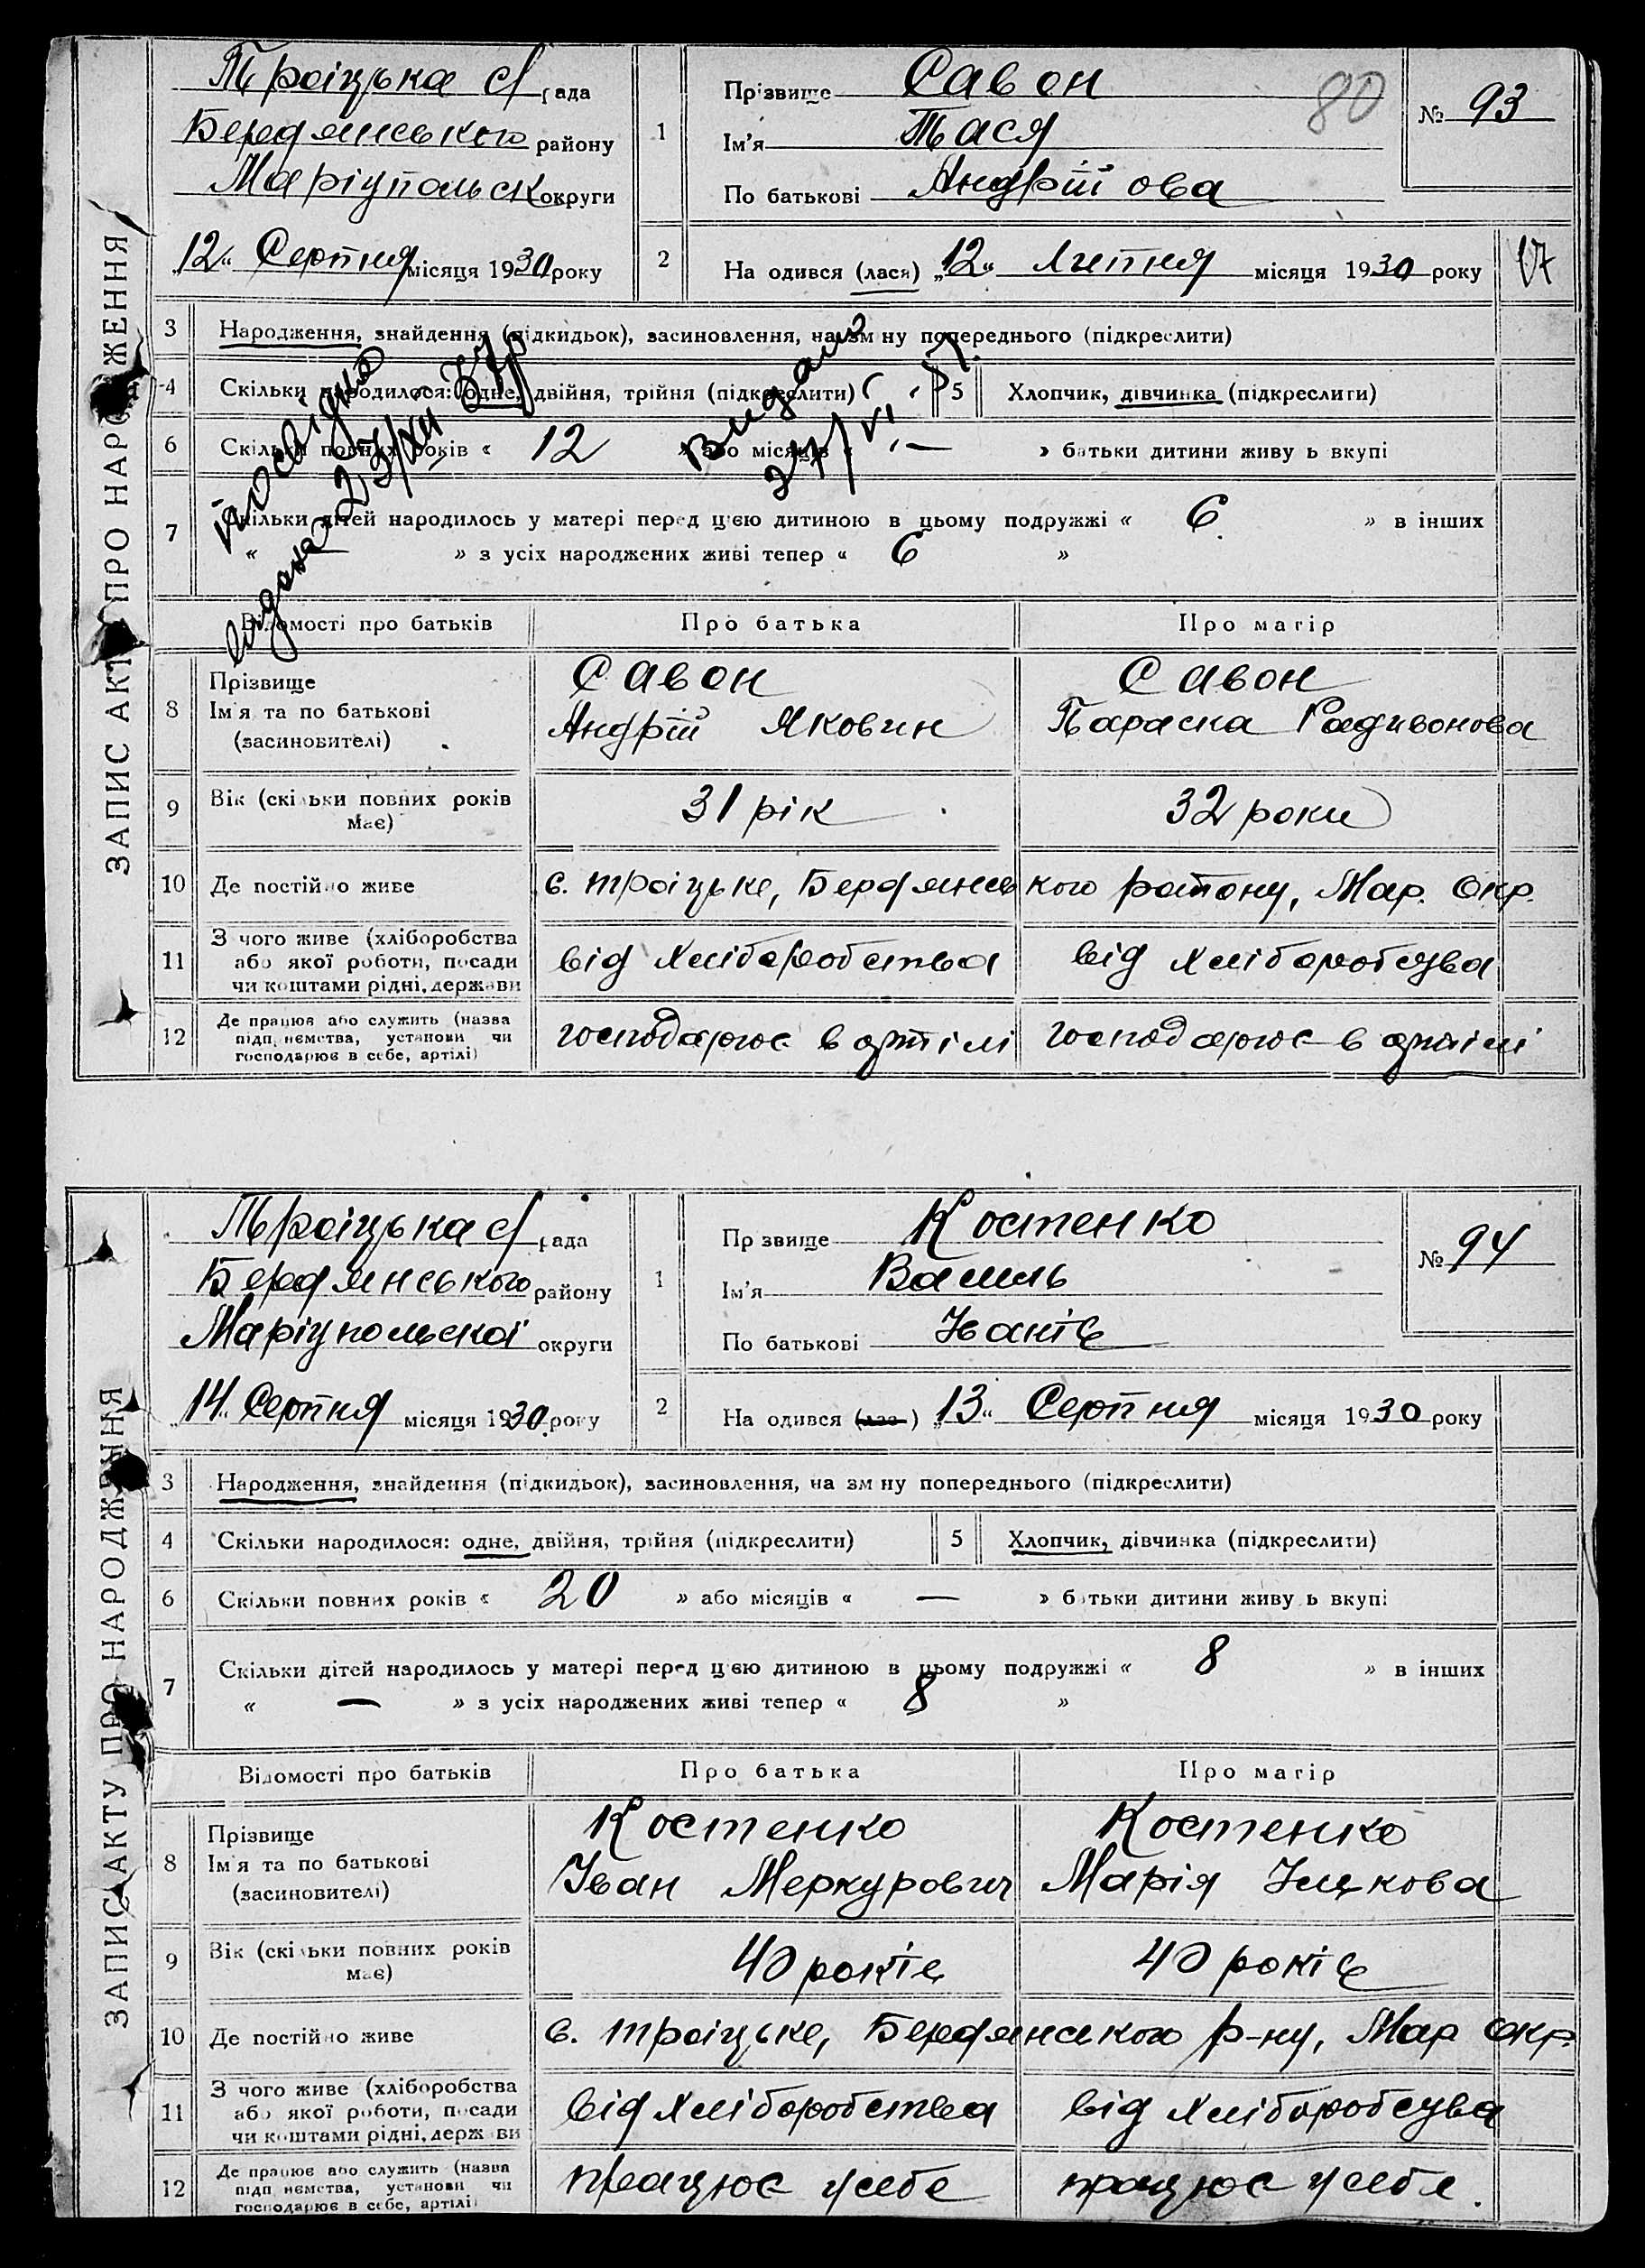 ЗАПИС АКТУ ПРО НАРОДЖЕННЯ
Троіцька с/рада
Бердянського району
Маріупольськ округи
"12" Серпня місяця 1930 року
1
Прізвище Савон
Ім'я Тася
По батькові Андрійова
80
№ 93
2
На одився (лася) "12" Липня місяця 1930 року
17
3 Народження, знайдення (підкидьок), засиновлення, на зм ну попереднього (підкреслити)
4 Скільки народилося: одне, двійня, трійня (підкреслити)
5 Хлопчик, дівчинка (підкреслити)
6 Скільки повних років « 12 » або місяців « — » батьки дитини живу ь вкупі
7 Скільки дітей народилось у матері перед цією дитиною в цьому подружжі « 6 » в інших
« » з усіх народжених живі тепер « 6 »
видана
23/XII
видано
27/VI
Відомості про батьків
Про батька
Про матір
8 Прізвище
Ім'я та по батькові
(засиновителі)
Савон
Андрій Якович
Савон
Параска Радивонова
9 Вік (скільки повних років
має)
31 рік
32 роки
10 Де постійно живе
с. Троіцьке, Бердянського району, Мар. Окр.
11 З чого живе (хліборобства
або якої роботи, посади
чи коштами рідні, держави
від хліборобства
від хліборобства
12 Де працює або служить (назва
підп иємства, установи чи
господарює в себе, артілі)
господарює в артілі
господарює в артілі
ЗАПИС АКТУ ПРО НАРОДЖЕННЯ
Троіцька с/рада
Бердянського району
Маріупольскоі округи
"14" Серпня місяця 1930 року
1
Пр звище Костенко
Ім'я Василь
По батькові Іванів
№ 94
2
На одився (лас ) "13" Серпня місяця 1930 року
3 Народження, знайдення (підкидьок), засиновлення, на зм ну попереднього (підкреслити)
4 Скільки народилося: одне, двійня, трійня (підкреслити)
5 Хлопчик, дівчинка (підкреслити)
6 Скільки повних років « 20 » або місяців « — » батьки дитини живу ь вкупі
7 Скільки дітей народилось у матері перед цією дитиною в цьому подружжі « 8 » в інших
« — » з усіх народжених живі тепер « 8 »
Відомості про батьків
Про батька
Про матір
8 Прізвище
Ім'я та по батькові
(засиновителі)
Костенко
Іван Меркурович
Костенко
Марія
9 Вік (скільки повних років
має)
40 років
40 років
10 Де постійно живе
с. Троіцьке, Бердянського р-ну, Мар Окр.
11 З чого живе (хліборобства
або якої роботи, посади
чи коштами рідні, держ ви
від хліборобства
від хліборобства
12 Де працює або служить (назва
підп иємства, установи чи
господарює в себе, артілі)
працює у себе
працює у себе.